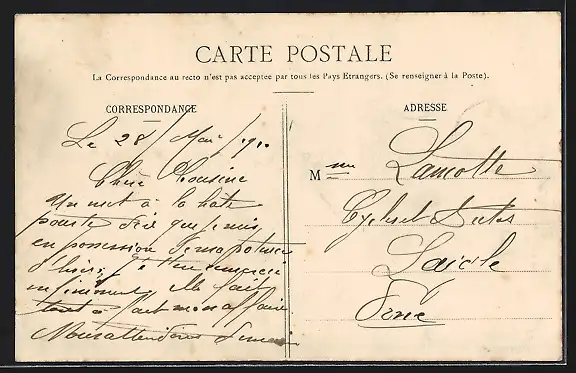 CARTE POSTALE
La Correspondance au recto n'est pas acceptée par tous les Pays Etrangers. (Se renseigner à la Poste).
CORRESPONDANCE
Le 28/ Mai /910
Chère Cousine
Un mot à la hâte
pour te dire que je suis
en possession de ma
d'hier, je t'en remercie
infiniment elle fait
tout à fait mon affaire
Nous attendons
ADRESSE
Mme Lamotte
Cycles et Autos
Laigle
Orne